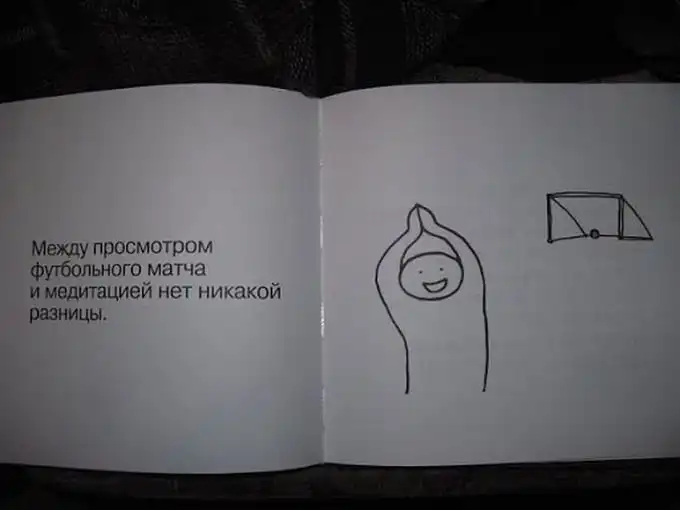 Между просмотром
футбольного матча
и медитацией нет никакой
разницы.